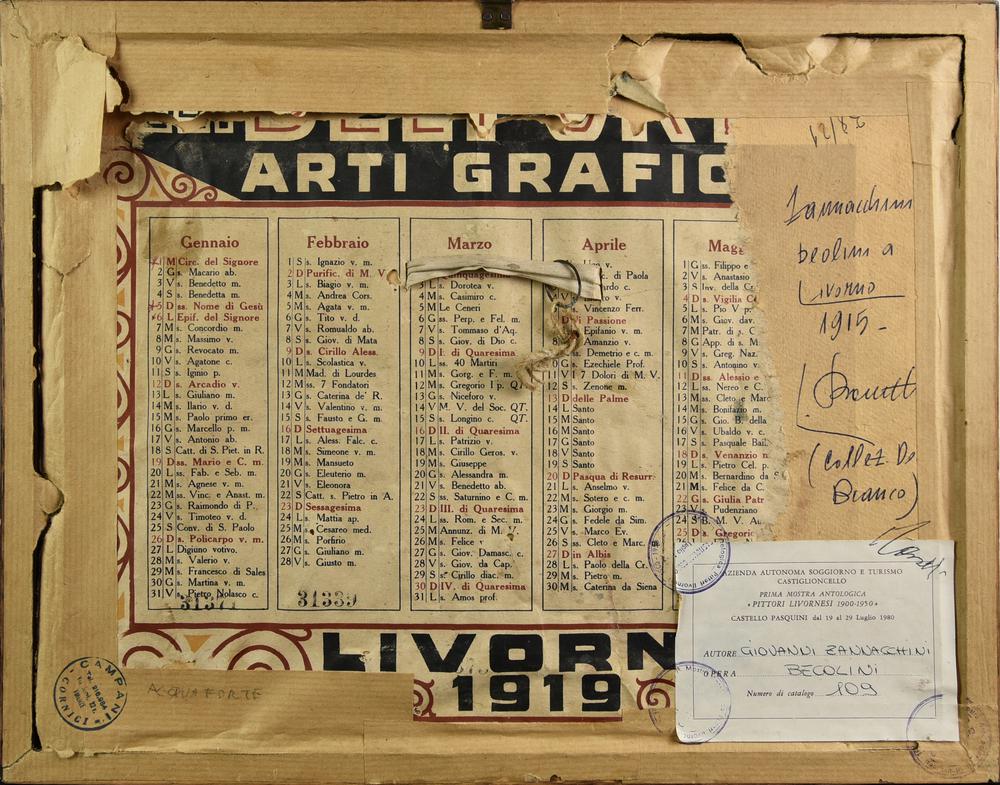 ARTI GRAFIC
Gennaio
1 M Circ. del Signore
2 G s. Macario ab.
3 V s. Benedetto m.
4 S s. Benedetta m.
5 D ss. Nome di Gesù
6 L Epif. del Signore
7 M s. Concordio m.
8 M s. Massimo v.
9 G s. Revocato m.
10 V s. Agatone c.
11 S s. Iginio p.
12 D s. Arcadio v.
13 L s. Giuliano m.
14 M s. Ilario v. d.
15 M s. Paolo primo er.
16 G s. Marcello p. m.
17 V s. Antonio ab.
18 S Catt. di S. Piet. in R.
19 D ss. Mario e C. m.
20 L ss. Fab. e Seb. m.
21 M s. Agnese v. m.
22 M ss. Vinc. e Anast. m.
23 G s. Raimondo di P.
24 V s. Timoteo v. d.
25 S Conv. di S. Paolo
26 D s. Policarpo v. m.
27 L Digiuno votivo.
28 M s. Valerio v.
29 M s. Francesco di Sales
30 G s. Martina v. m.
31 V s. Pietro Nolasco c.
Febbraio
1 S s. Ignazio v. m.
2 D Purific. di M. V
3 L s. Biagio v. m.
4 M s. Andrea Cors.
5 M s. Agata v. m.
6 G s. Tito v. d.
7 V s. Romualdo ab.
8 S s. Giov. di Mata
9 D s. Cirillo Aless.
10 L s. Scolastica v.
11 M Mad. di Lourdes
12 M ss. 7 Fondatori
13 G s. Caterina de' R.
14 V s. Valentino v. m.
15 S s. Fausto e G. m.
16 D Settuagesima
17 L s. Aless. Falc. c.
18 M s. Simeone v. m.
19 M s. Mansueto
20 G s. Eleuterio m.
21 V s. Eleonora
22 S Catt. s. Pietro in A.
23 D Sessagesima
24 L s. Mattia ap.
25 M s. Cesareo med.
26 M s. Porfirio
27 G s. Giuliano m.
28 V s. Giusto m.
31339
Marzo
Quinquagesima
3 L s. Dorotea v.
4 M s. Casimiro c.
5 M Le Ceneri
6 G ss. Perp. e Fel. m.
7 V s. Tommaso d'Aq.
8 S s. Giov. di Dio c.
9 D I. di Quaresima
10 L ss. 40 Martiri
11 M s. Gorg. e F. m.
12 M s. Gregorio I p. QT.
13 G s. Niceforo v.
14 V M. V. del Soc. QT.
15 S s. Longino c. QT.
16 D II. di Quaresima
17 L s. Patrizio v.
18 M s. Cirillo Geros. v.
19 M s. Giuseppe
20 G s. Alessandra m.
21 V s. Benedetto ab.
22 S ss. Saturnino e C. m.
23 D III. di Quaresima
24 L ss. Rom. e Sec. m.
25 M Annunz. di M. V.
26 M s. Felice v
27 G s. Giov. Damasc. c.
28 V s. Giov. da Cap.
29 S s. Cirillo diac. m.
30 D IV. di Quaresima
31 L s. Amos prof.
Aprile
c. di Paola
s. Vincenzo Ferr.
di Passione
s. Epifanio v. m.
s. Amanzio v.
ss. Demetrio e c. m.
10 G s. Ezechiele Prof.
11 V I 7 Dolori di M. V.
12 S s. Zenone m.
13 D delle Palme
14 L Santo
15 M Santo
16 M Santo
17 G Santo
18 V Santo
19 S Santo
20 D Pasqua di Resurr.
21 L s. Anselmo v.
22 M s. Sotero e c. m.
23 M s. Giorgio m.
24 G s. Fedele da Sim.
25 V s. Marco Ev.
26 S ss. Cleto e Marc.
27 D in Albis
28 L s. Paolo della Cr.
29 M s. Pietro m.
30 M s. Caterina da Siena
Magg
1 G ss. Filippo e
2 V s. Anastasio
3 S Inv. della Cr
4 D s. Vigilia C
5 L s. Pio V p.
6 M s. Giov. dav.
7 M Patr. di s. C
8 G App. di s. M
9 V s. Greg. Naz.
10 S s. Antonino v.
11 D ss. Alessio e
12 L ss. Nereo e C.
13 M ss. Cleto e Marc
14 M s. Bonifazio m.
15 G s. Gio. B. della
16 V s. Ubaldo v. c.
17 S s. Pasquale Bail.
18 D s. Venanzio m
19 L s. Pietro Cel. p.
20 M s. Bernardino da S
21 M s. Felice da C.
22 G s. Giulia Patr
23 V s. Pudenziano
24 S B. M. V. A
25 D s. Gregorio
LIVORN
1919
Livorno
1915-
(Collez. De
Bianco)
AZIENDA AUTONOMA SOGGIORNO E TURISMO
CASTIGLIONCELLO
PRIMA MOSTRA ANTOLOGICA
«PITTORI LIVORNESI 1900-1950»
CASTELLO PASQUINI dal 19 al 29 Luglio 1980
AUTORE GIOVANNI ZANNACCHINI
OPERA BECOLINI
Numero di catalogo 109
CAMPANI
CORNICI
ACQUAFORTE